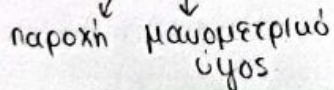 παροχή μανομετρικό
ύψος